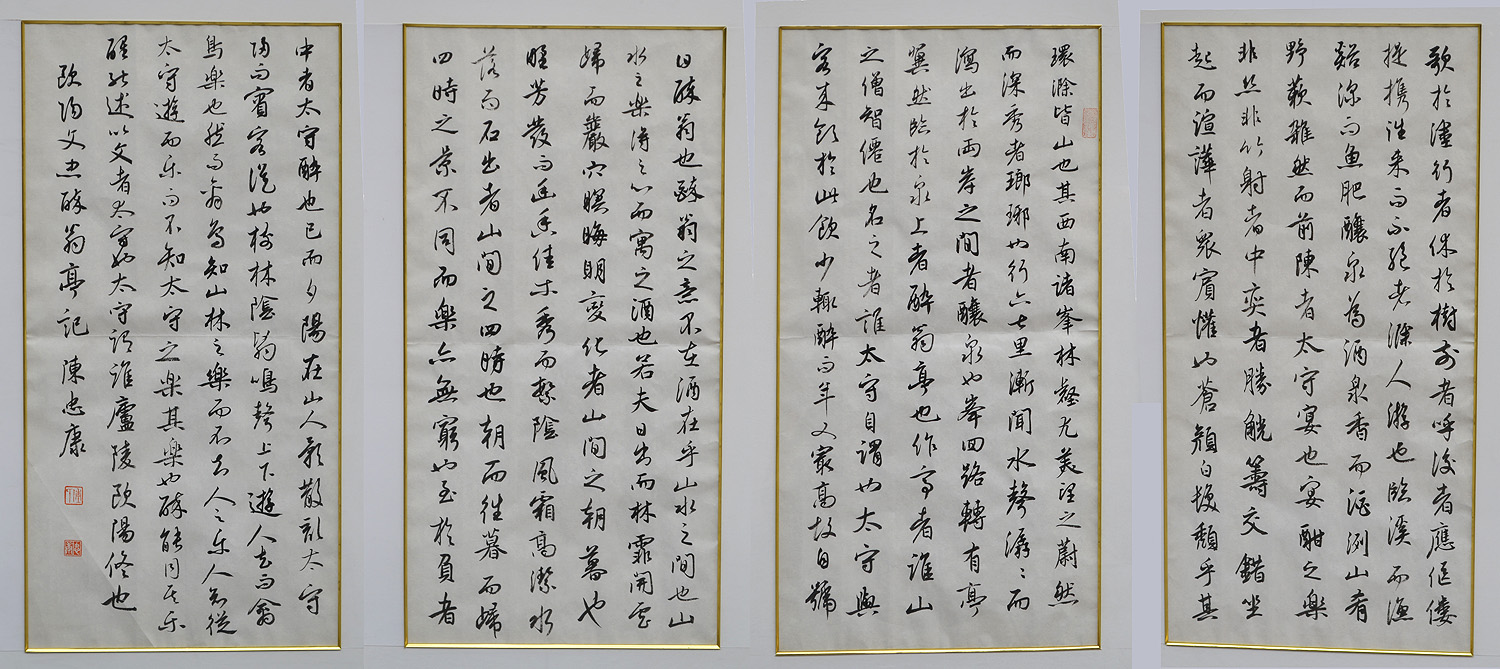 環滁皆山也其西南諸峯林壑尤美望之蔚然
而深秀者瑯琊也行六七里漸聞水聲潺〻而
瀉出於兩峯之間者釀泉也峯回路轉有亭
翼然臨於泉上者醉翁亭也作亭者誰山
之僧智僊也名之者誰太守自謂也太守與
客來飲於此飲少輒醉而年又最高故自號
曰醉翁也醉翁之意不在酒在乎山水之間也山
水之樂得之心而寓之酒也若夫日出而林霏開雲
歸而巖穴暝晦明變化者山間之朝暮也
野芳發而幽香佳木秀而繁陰風霜高潔水
落而石出者山間之四時也朝而往暮而歸
四時之景不同而樂亦無窮也至於負者
歌於塗行者休於樹前者呼後者應傴僂
提攜往來而不絕者滁人遊也臨溪而漁
谿深而魚肥釀泉為酒泉香而酒洌山肴
野蔌雜然而前陳者太守宴也宴酣之樂
非絲非竹射者中奕者勝觥籌交錯坐
起而諠譁者眾賓懽也蒼顏白髮頹乎其
中者太守醉也已而夕陽在山人影散亂太守
歸而賓客從也樹林陰翳鳴聲上下遊人去而禽
鳥樂也然而禽鳥知山林之樂而不知人之樂人知從
太守遊而樂而不知太守之樂其樂也醉能同其樂
醒能述以文者太守也太守謂誰廬陵歐陽修也
歐陽文忠醉翁亭記 陳忠康